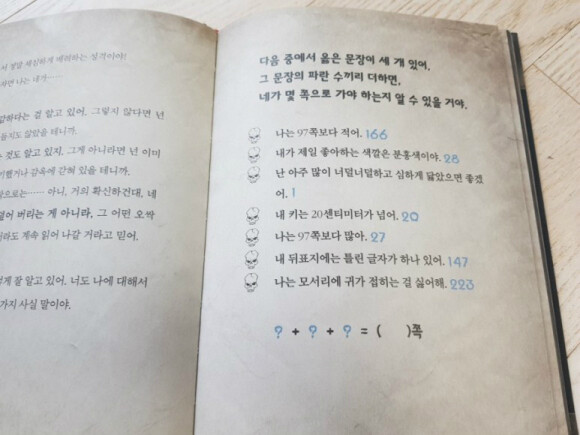 서 정말 세심하게 배려하는 성격이야!
나면 나는 네가……
갈하다는 걸 알고 있어. 그렇지 않다면 넌
들지도 않았을 테니까.
는 것도 알고 있지. 그게 아니라면 넌 이미
비했거나 감옥에 갇혀 있을 테니까.
쪽으로는…… 아니, 거의 확신하건대, 네
덜어 버티는 게 아니라, 그 어떤 오싹
러라도 계속 읽어 나갈 거라고 믿어.
렇게 잘 알고 있어. 너도 나에 대해서
가지 사실 말이야.
다음 중에서 옳은 문장이 세 개 있어.
그 문장의 파란 수끼리 더하면,
네가 몇 쪽으로 가야 하는지 알 수 있을 거야.
나는 97쪽보다 적어. 166
내가 제일 좋아하는 색깔은 분홍색이야. 28
난 아주 많이 너덜너덜하고 심하게 닳았으면 좋겠
어. 1
내 키는 20센티미터가 넘어. 20
나는 97쪽보다 많아. 27
내 뒤표지에는 틀린 글자가 하나 있어. 147
나는 모서리에 귀가 접히는 걸 싫어해. 223
? + ? + ? = (    )쪽